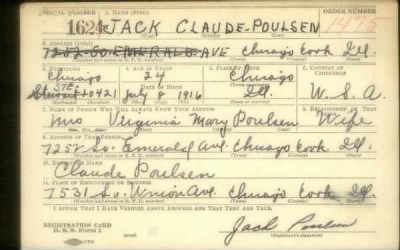 SERIAL NUMBER 1. NAME (Print) ORDER NUMBER
1624 JACK CLAUDE-POULSEN 1475
2. ADDRESS (Print)
7252-SO-EMERALD-AVE Chicago Cook Ill.
3. TELEPHONE 4. AGE IN YEARS 5. PLACE OF BIRTH 6. COUNTRY OF CITIZENSHIP
Chicago 24 Chicago
DATE OF BIRTH
10421 July 8 1916 Ill. U.S.A.
7. NAME OF PERSON WHO WILL ALWAYS KNOW YOUR ADDRESS 8. RELATIONSHIP OF THAT PERSON
Mrs Virginia Mary Poulsen Wife
9. ADDRESS OF THAT PERSON
7252 So. Emerald Ave. Chicago Cook Ill.
10. EMPLOYER'S NAME
Claude Poulsen
11. PLACE OF EMPLOYMENT OR BUSINESS
7531 So. Union Ave. Chicago Cook Ill.
I AFFIRM THAT I HAVE VERIFIED ABOVE ANSWERS AND THAT THEY ARE TRUE.
REGISTRATION CARD
D. S. S. Form 1
Jack Poulsen
(Registrant's signature)